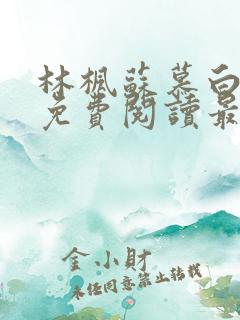 林楓蘇慕白
免費閱讀最
金小財
未經同意禁止轉載